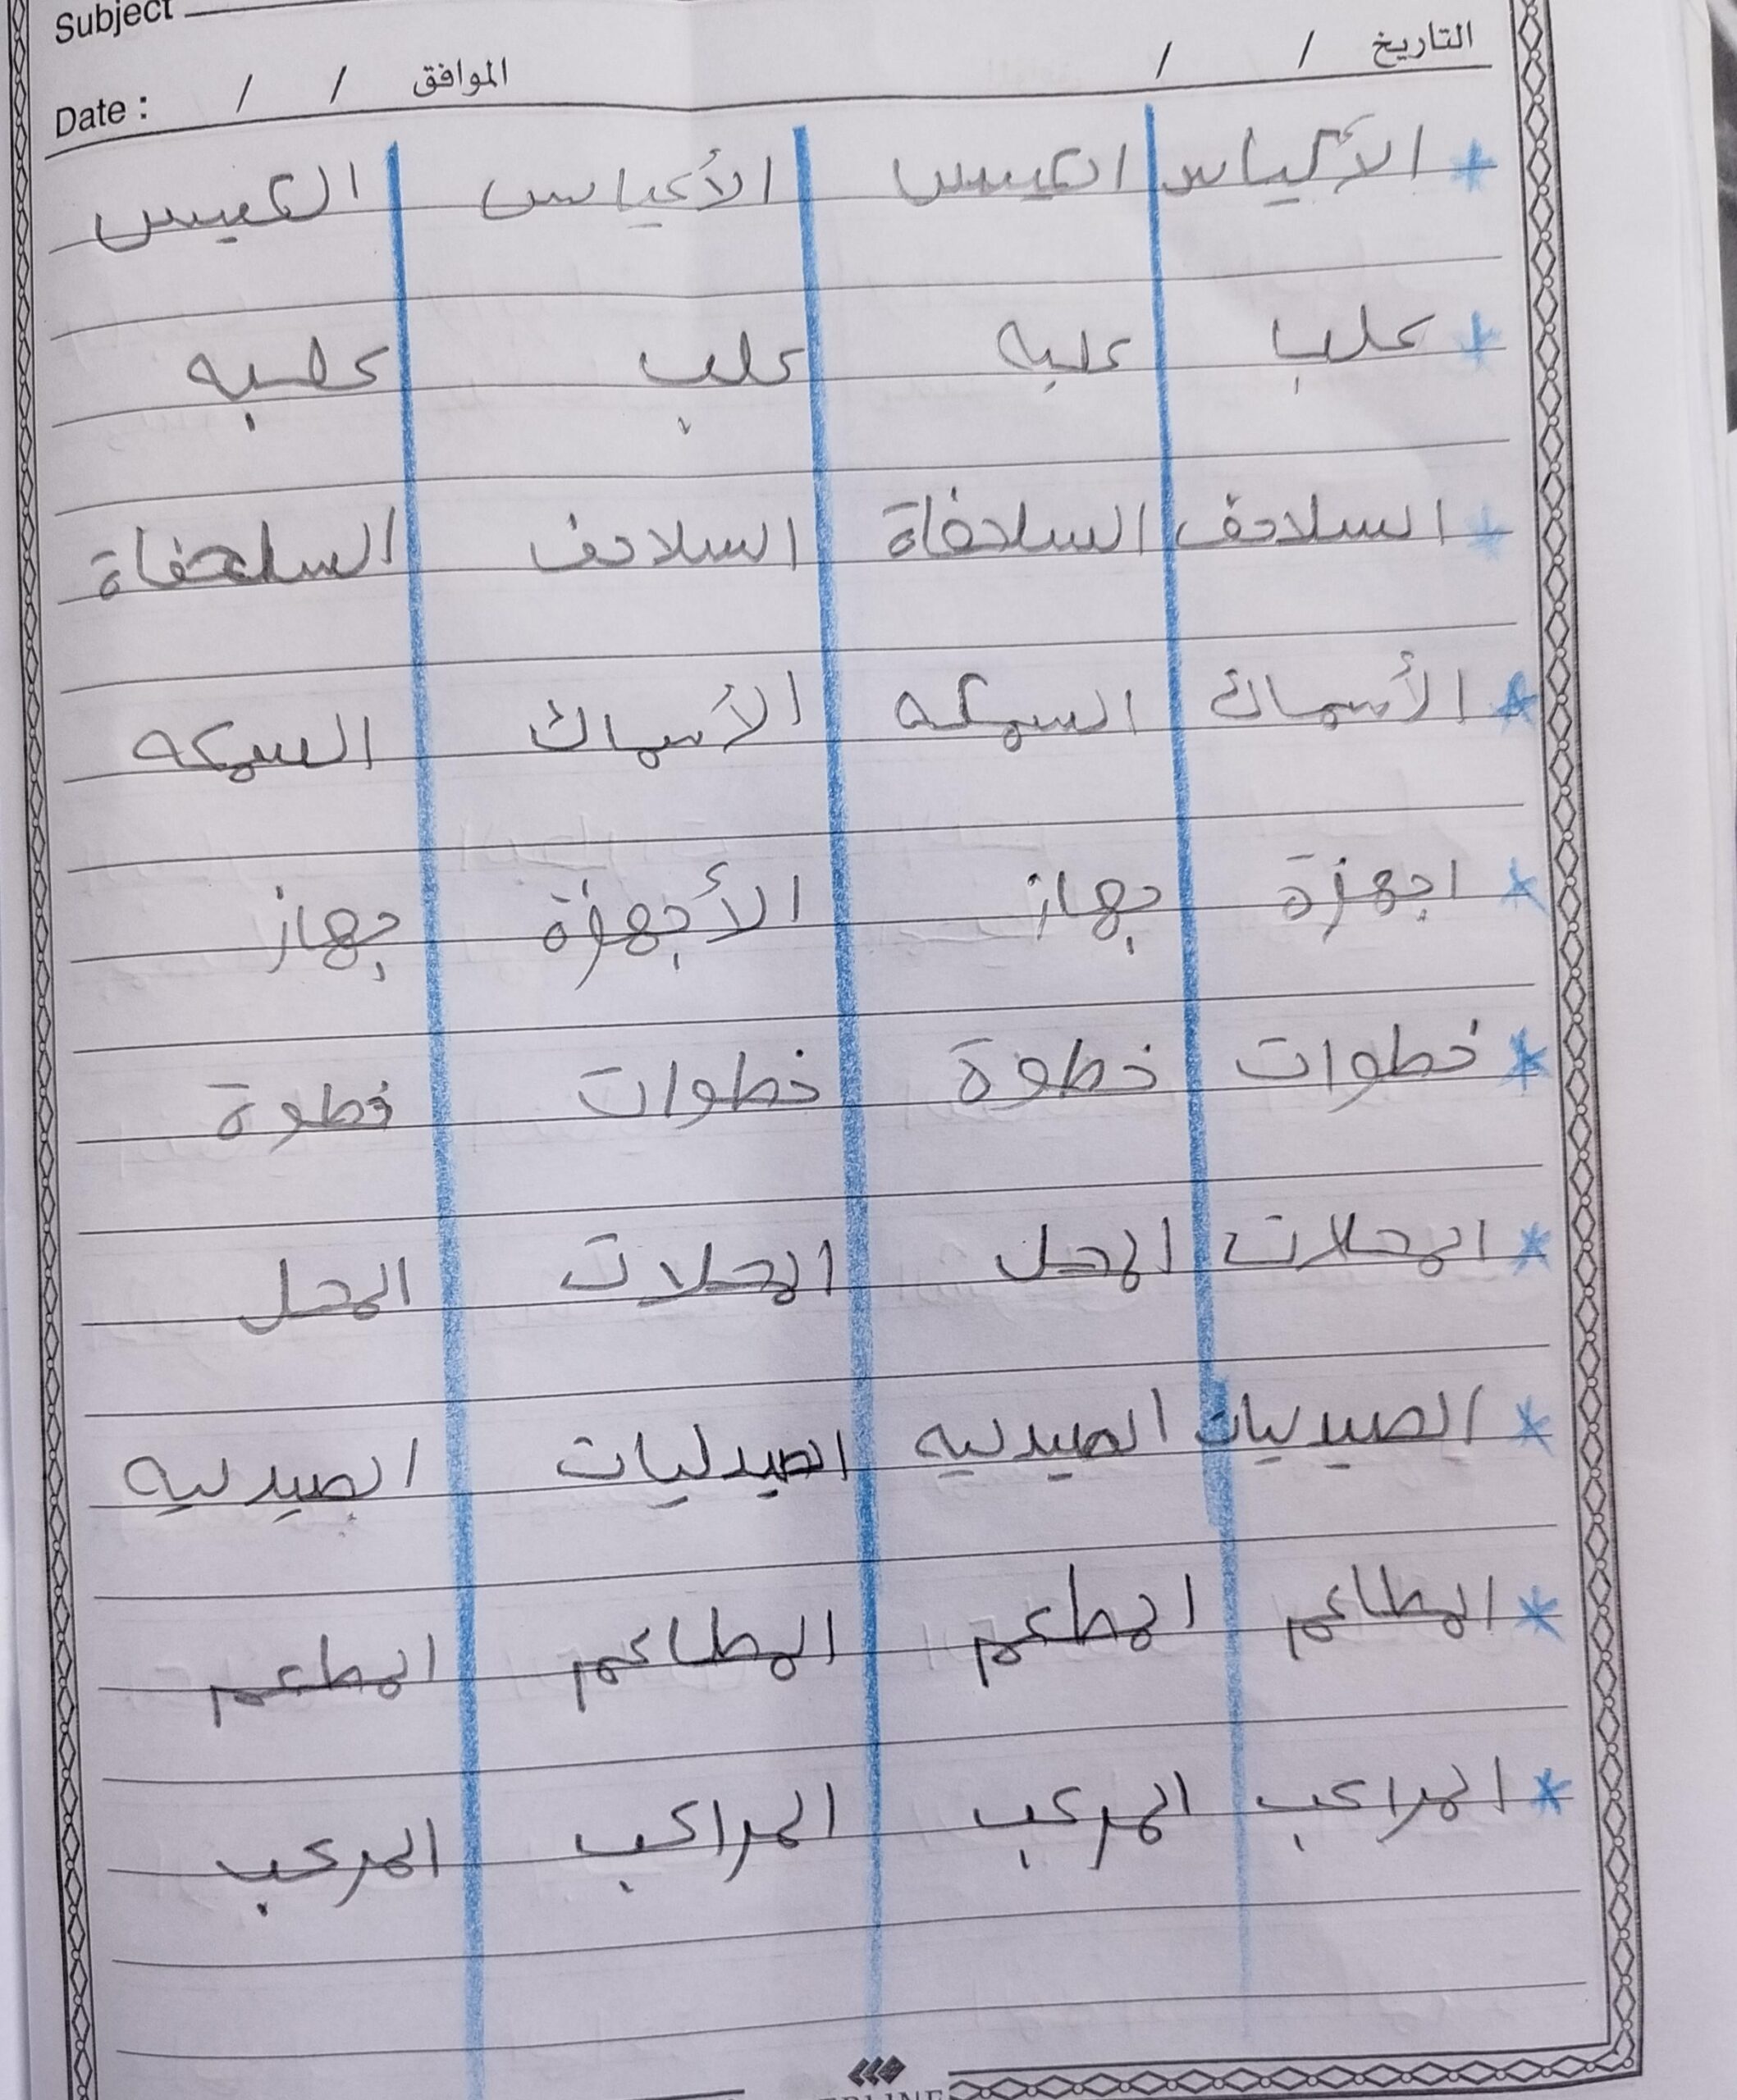 Subject
التاريخ / / الموافق / / Date :
* الأكياس الكيس الأكياس الكيس
* علب علبه علب علبه
* السلاحف السلحفاة السلاحف السلحفاة
* الأسماك السمكه الأسماك السمكه
* اجهزة جهاز الأجهزة جهاز
* خطوات خطوة خطوات خطوة
* المحلات المحل المحلات المحل
* الصيدليات الصيدليه الصيدليات الصيدليه
* المطاعم المطعم المطاعم المطعم
* المراكب المركب المراكب المركب